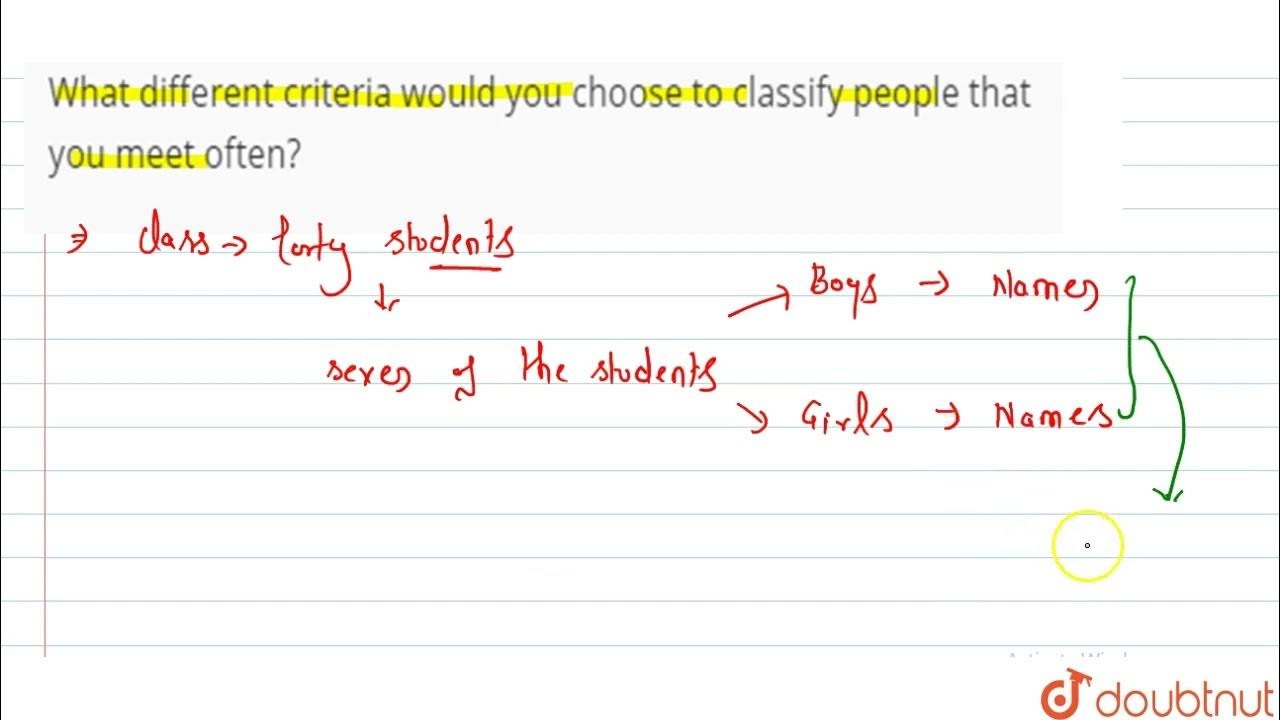 What different criteria would you choose to classify people that
you meet often?
⇒ Class → forty students
↓
sexes of the students
↗ Boys → Names
↘ Girls → Names
doubtnut